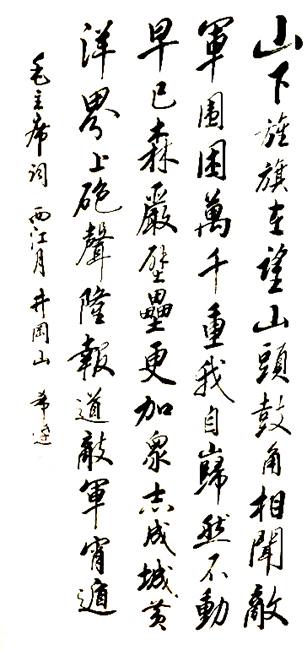 山下旌旗在望山頭鼓角相聞敵
軍圍困萬千重我自巋然不動
早已森嚴壁壘更加衆志成城黄
洋界上砲聲隆報道敵軍宵遁
毛主席词 西江月 井岡山 希逵